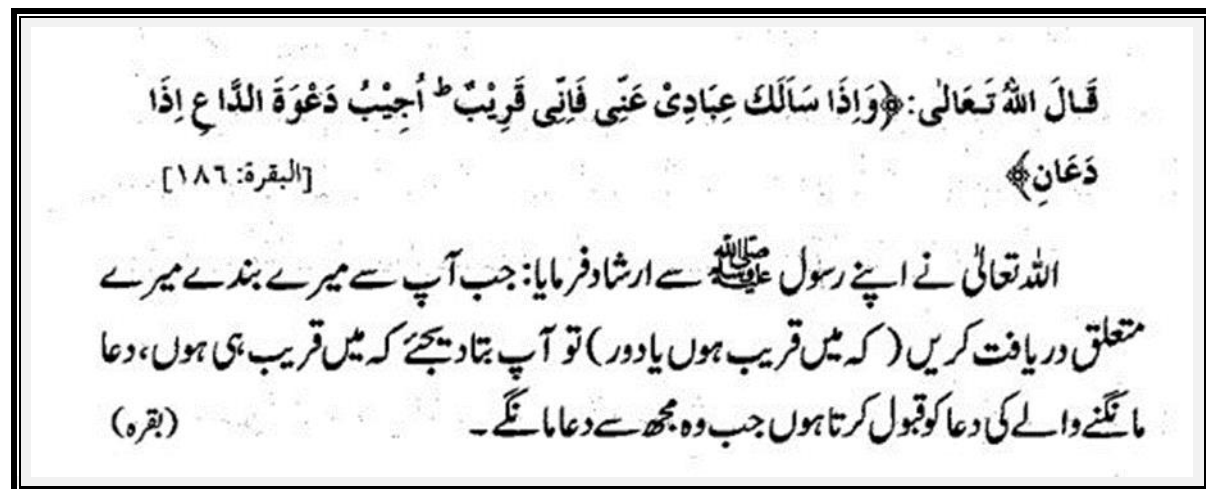 قَالَ اللّٰهُ تَعَالٰی: ﴿وَاِذَا سَاَلَكَ عِبَادِیْ عَنِّی فَاِنِّی قَرِیْبٌ ؕ اُجِیْبُ دَعْوَةَ الدَّاعِ اِذَا
دَعَانِ﴾ [البقرة: ١٨٦]
اللہ تعالیٰ نے اپنے رسول ﷺ سے ارشاد فرمایا: جب آپ سے میرے بندے میرے
متعلق دریافت کریں (کہ میں قریب ہوں یا دور) تو آپ بتا دیجئے کہ میں قریب ہی ہوں، دعا
مانگنے والے کی دعا کو قبول کرتا ہوں جب وہ مجھ سے دعا مانگے۔ (بقرہ)